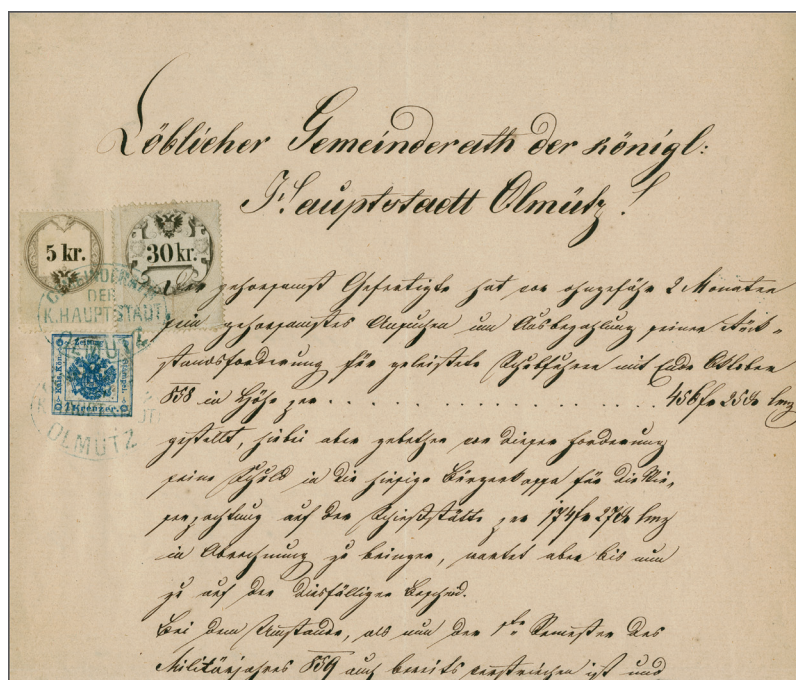 Löblicher Gemeinderath der königl:
Hauptstadt Olmütz!
5 kr.
30 kr.
GEMEINDERATH
DER
K. HAUPTSTADT
OLMÜTZ
Kais. Kön.
1 Kreuzer.
OLMÜTZ
gehorsamst Gefertigte hat vor ohngefähr 2 Monaten
ein gehorsamstes Ansuchen um Ausbezahlung seiner Rück-
standsforderung für geleistete Schubfuhren mit Ende Oktober
858 in Höhe per . . . . . . . . . . . . . . . . . . 456 fr 25
gestellt, hiebei aber gebethen von dieser Forderung
seine Schuld in die hiesige Bürgerkassa für die
auf der Schießstätte per 174 fr 27
in Abrechnung zu bringen, wartet aber bis nun
zu auf den diesfälligen Bescheid.
Bei dem Umstande, als nun der 1te Semester des
Militärjahres 859 auch bereits verstrichen ist und